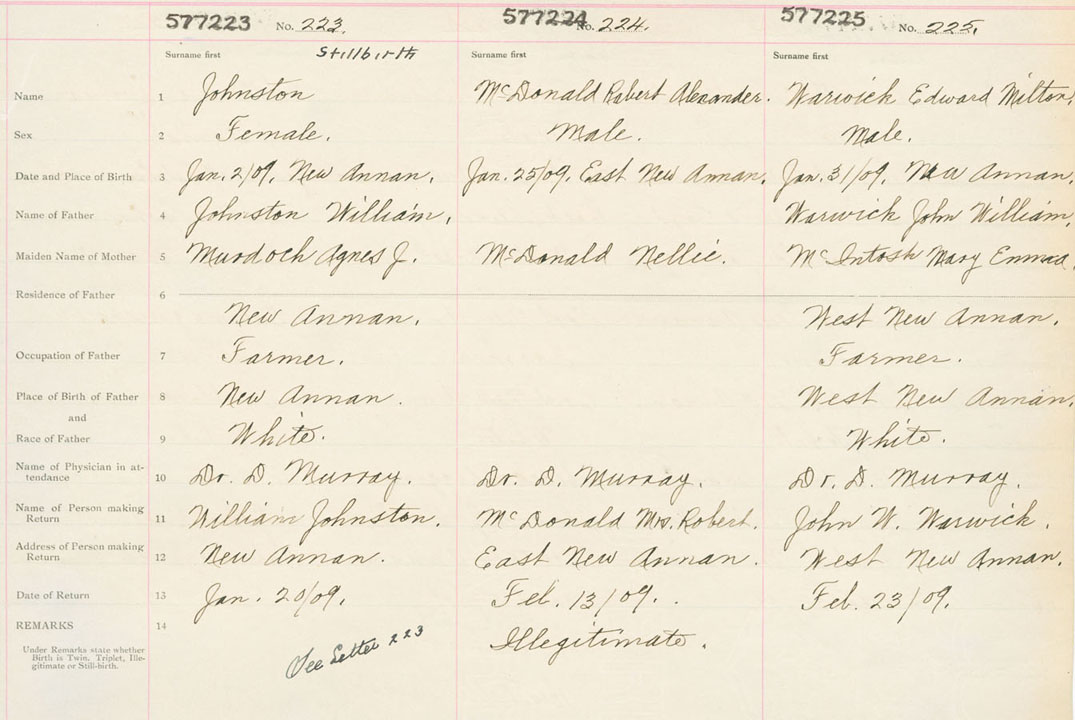 577223 No. 223. 577224 No. 224. 577225 No. 225.
Stillbirth
Surname first Surname first Surname first
Name 1 Johnston McDonald Robert Alexander. Warwick Edward Milton.
Sex 2 Female. Male. Male.
Date and Place of Birth 3 Jan. 2/09. New Annan. Jan. 25/09. East New Annan. Jan. 31/09. New Annan.
Name of Father 4 Johnston William. Warwick John William.
Maiden Name of Mother 5 Murdoch Agnes J. McDonald Nellie. McIntosh Mary Emma.
Residence of Father 6
New Annan. West New Annan.
Occupation of Father 7 Farmer. Farmer.
Place of Birth of Father 8 New Annan. West New Annan.
and
Race of Father 9 White. White.
Name of Physician in at-
tendance 10 Dr. D. Murray. Dr. D. Murray. Dr. D. Murray.
Name of Person making
Return 11 William Johnston. McDonald Mrs. Robert. John W. Warwick.
Address of Person making
Return 12 New Annan. East New Annan. West New Annan.
Date of Return 13 Jan. 20/09. Feb. 13/09. Feb. 23/09.
REMARKS 14 Illegitimate.
Under Remarks state whether
Birth is Twin, Triplet, Ille-
gitimate or Still-birth.
See Letter 223